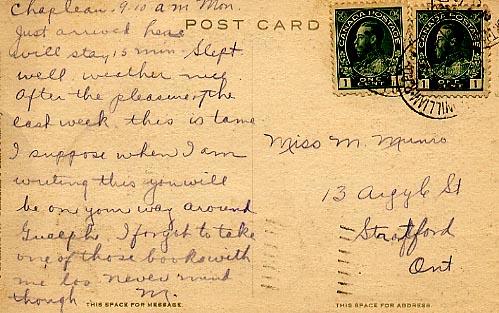 Chapleau. 9.10 a.m Mon.
POST CARD
Just arrived here
will stay 15 min. Slept
well, weather nice
After the pleasure of the
last week this is tame
I suppose when I am
writing this you will
be on your way around
Guelph. I forgot to take
one of those books with
me too. Never mind
though M.
THIS SPACE FOR MESSAGE.
CANADA POSTAGE
1 ONE CENT 1
CANADA POSTAGE
1 ONE CENT 1
Miss M. Munro
13 Argyle St
Stratford
Ont
THIS SPACE FOR ADDRESS.